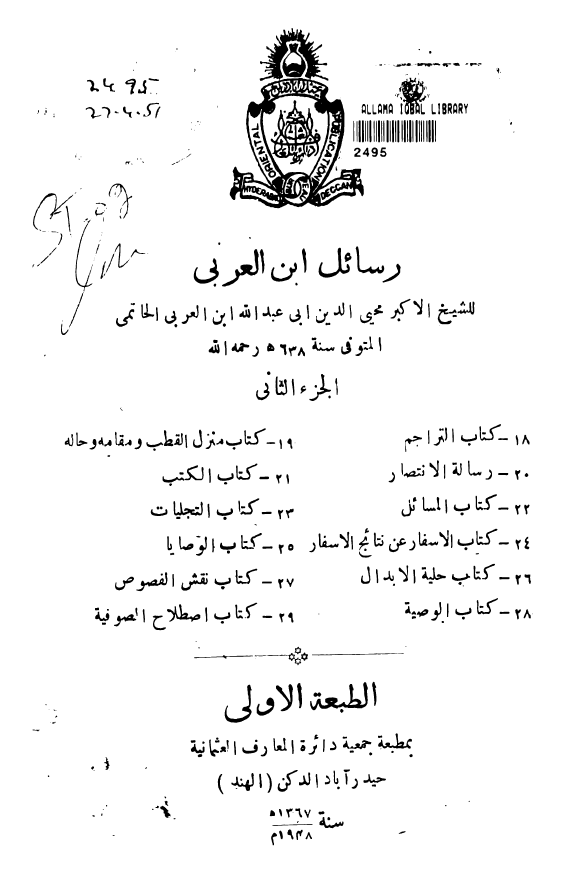 2495
27.4.51
ALLAMA IQBAL LIBRARY
2495
ORIENTAL PUBLICATION
HYDERABAD DECCAN
رسائل ابن العربى
للشيخ الاكبر محيى الدين ابى عبدالله ابن العربى الحاتمى
المتوفى سنة ٦٣٨ ﻫ رحمه الله
الجزء الثانى
١٨ - كتاب التراجم ١٩ - كتاب منزل القطب ومقامه وحاله
٢٠ - رسالة الانتصار ٢١ - كتاب الكتب
٢٢ - كتاب المسائل ٢٣ - كتاب التجليات
٢٤ - كتاب الاسفار عن نتائج الاسفار ٢٥ - كتاب الوصايا
٢٦ - كتاب حلية الابدال ٢٧ - كتاب نقش الفصوص
٢٨ - كتاب الوصية ٢٩ - كتاب اصطلاح الصوفية
الطبعة الاولى
بمطبعة جمعية دائرة المعارف العثمانية
حيدرآباد الدكن (الهند)
سنة ١٣٦٧ﻫ
١٩٤٨م